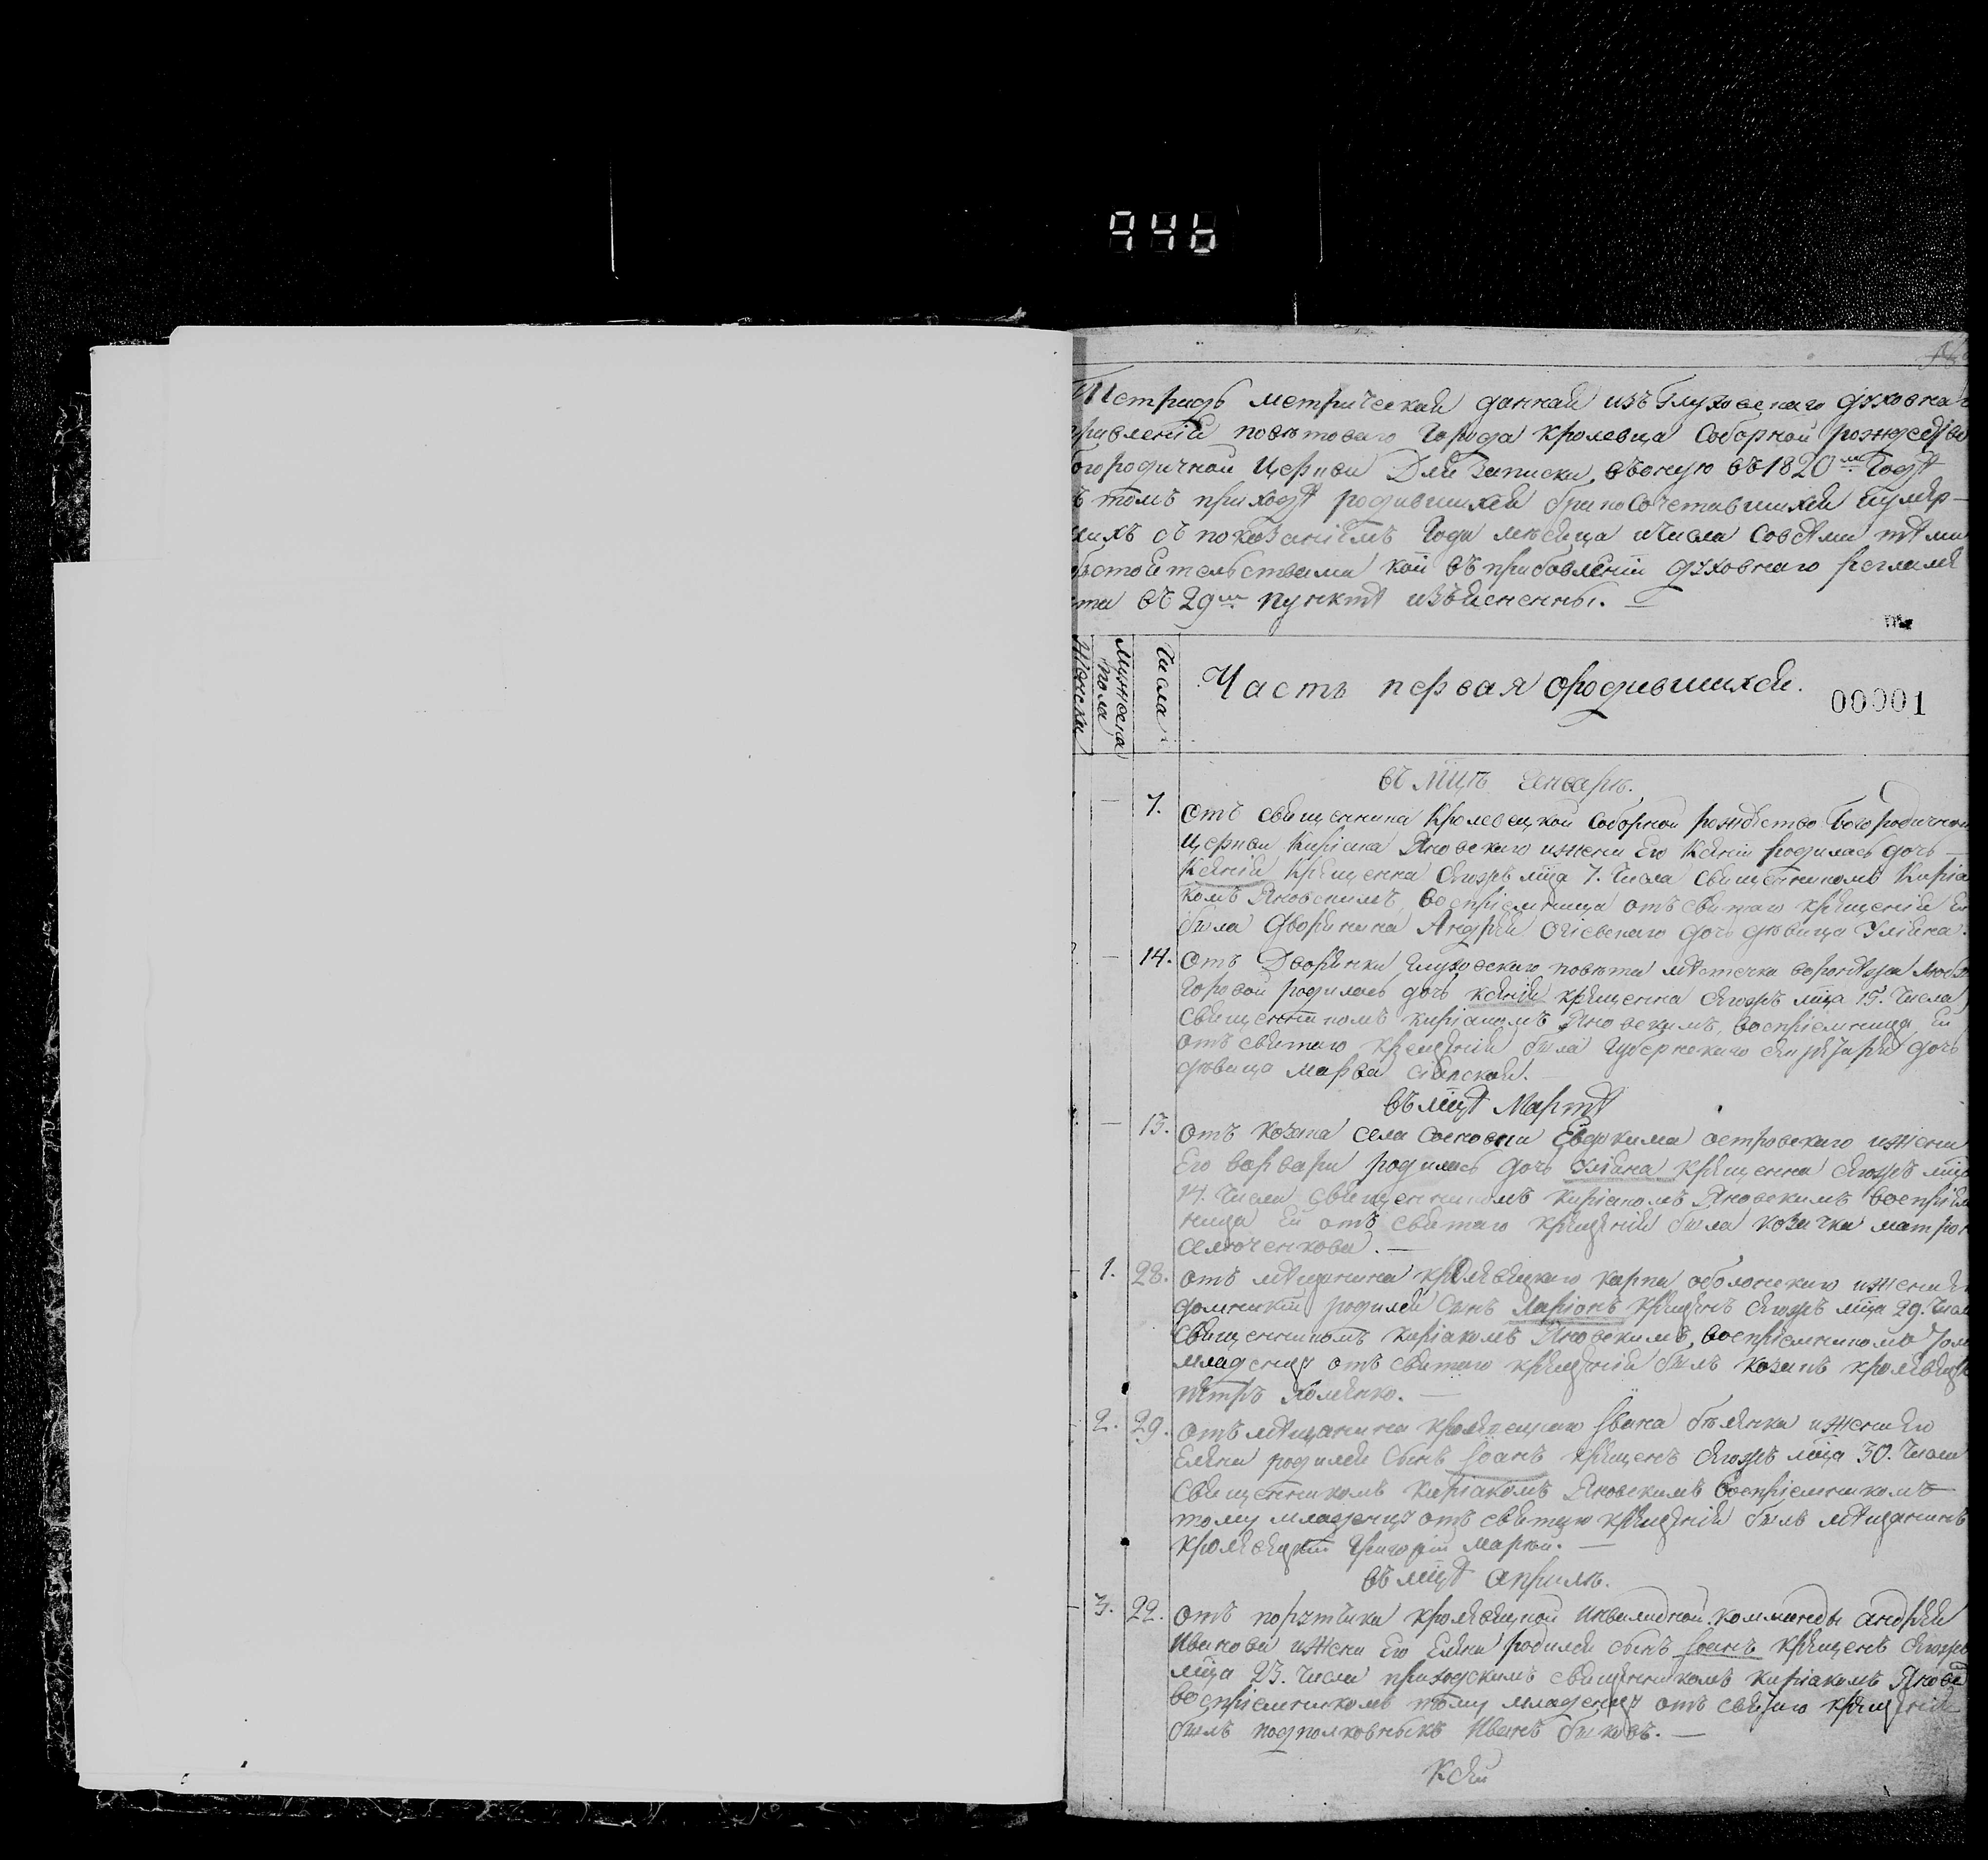 946
Тетрадь метрическая данная изъ Глуховскаго духовнаго
правленія повѣтоваго Города Кролевца Соборной рождество
богородичной Церкви Для записки въ оную въ 1820м Годѣ
въ томъ приходѣ родившихся бракосочетавшихся и умер-
шихъ съ показаніемъ Года мѣсяца и числа со всѣми тѣми
обстоятельствами кои въ прибавленіи духовнаго регламе
та въ 29м пунктѣ изъясненны.
Женска
Мужеска пола
Числа
Часть первая о родившихся.
00001
въ мцѣ Генварѣ.
7. Отъ священника Кролевецкой Соборной рождество Богородичной
Церкви Киріака Яновскаго и жени Его Ксеніи родилась дочь
Ксенія Крещенна тогожъ мца 7. числа священникомъ Киріа
комъ Яновскимъ, воспріемница отъ святаго крещенія Ея
была дворянина Андрея дочь дѣвица Уліяна.
14. Отъ Дворянки Глуховскаго повѣта мѣстечка воронѣжа
родилась дочь Ксенія крещенна тогожъ мца 15. числа
Священникомъ киріакомъ Яновскимъ, воспріемница Ей
отъ святаго крещенія была Губернскаго секретаря дочь
дѣвица Марфа
въ мцѣ Мартѣ
13. Отъ козака села Евдокима островскаго и жени
Его варвари родилась дочь Уліяна крещенна тогожъ мца
14. числа священникомъ Киріакомъ Яновскимъ воспріем
ница Ей отъ святаго крещенія была козачка матрон
1. 28. отъ мѣщанина кролевецкаго карпа оболонскаго и жени Ег
домникіи родился сынъ Ларіонъ крещенъ тогожъ мца 29. числ
Священникомъ киріакомъ Яновскимъ, воспріемникомъ Тому
младенцу отъ святаго крещенія былъ козакъ кролевец
петръ Хоменко.
2. 29. отъ мѣщанина кролевецкаго Івана и жени Его
Елени родился сынъ Іоанъ крещенъ тогожъ мца 30. числа
Священникомъ Киріакомъ Яновскимъ воспріемникомъ
тому младенцу отъ святаго крещенія былъ мѣщанинъ
кролевецкій Григорій
въ мцѣ Априлѣ.
3. 22. отъ порутчика кролевецкой инвалидной комманды андрея
Иванова и жени Его Елени родился сынъ Іоанъ крещенъ тогожъ
мца 23. числа приходскимъ священникомъ киріакомъ Яновс
воспріемникомъ тому младенцу отъ святаго крещенія
былъ подполковникъ Иванъ биковъ.